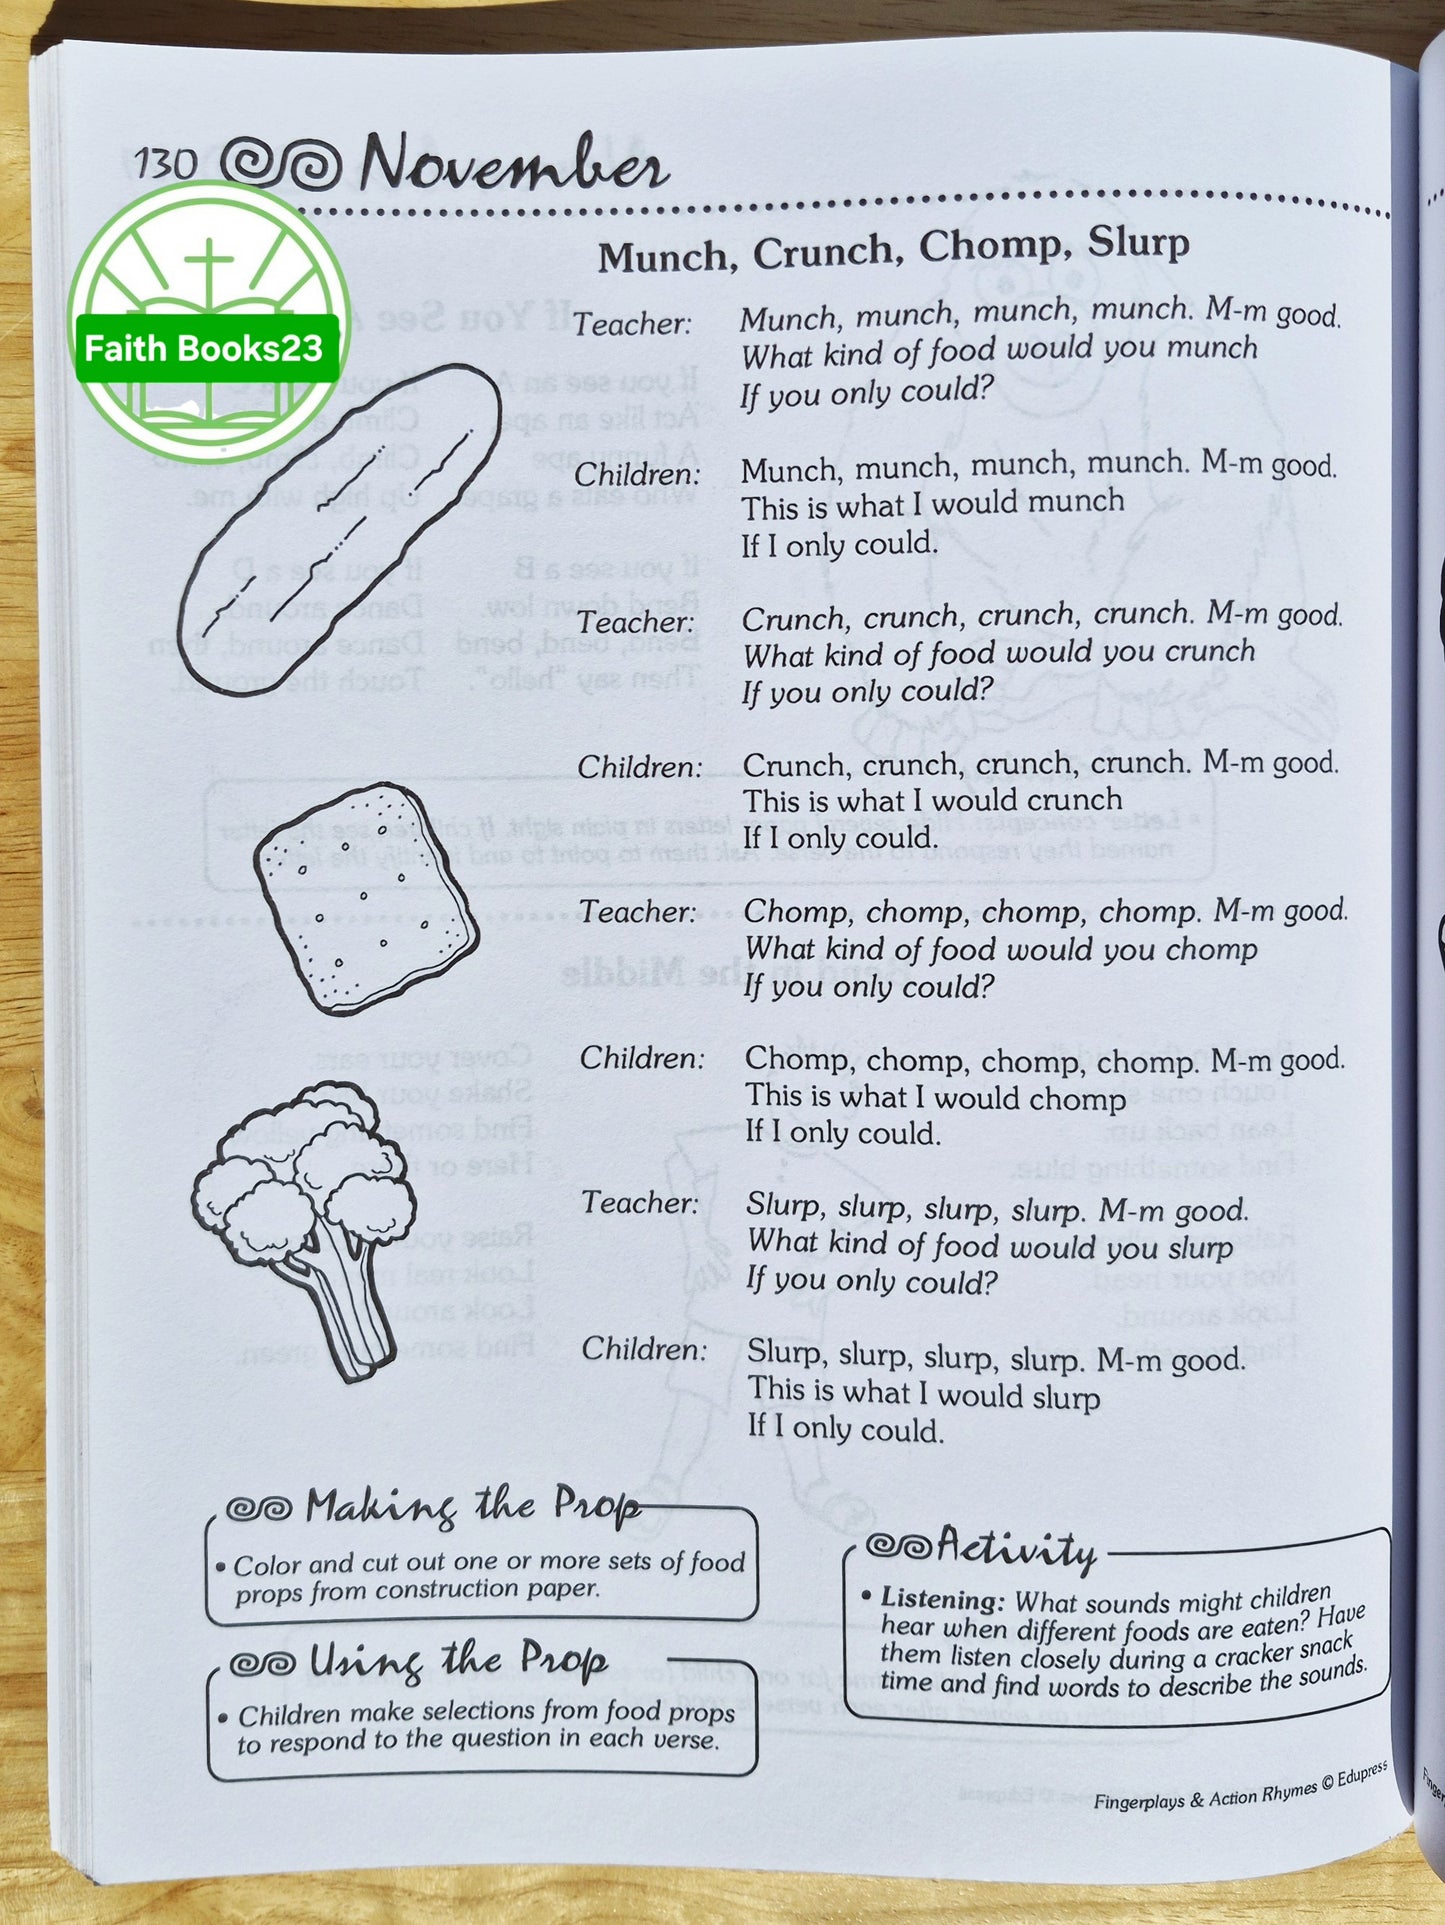 130 November
Faith Books23
Munch, Crunch, Chomp, Slurp
Teacher: Munch, munch, munch, munch. M-m good.
What kind of food would you munch
If you only could?
Children: Munch, munch, munch, munch. M-m good.
This is what I would munch
If I only could.
Teacher: Crunch, crunch, crunch, crunch. M-m good.
What kind of food would you crunch
If you only could?
Children: Crunch, crunch, crunch, crunch. M-m good.
This is what I would crunch
If I only could.
Teacher: Chomp, chomp, chomp, chomp. M-m good.
What kind of food would you chomp
If you only could?
Children: Chomp, chomp, chomp, chomp. M-m good.
This is what I would chomp
If I only could.
Teacher: Slurp, slurp, slurp, slurp. M-m good.
What kind of food would you slurp
If you only could?
Children: Slurp, slurp, slurp, slurp. M-m good.
This is what I would slurp
If I only could.
Making the Prop
• Color and cut out one or more sets of food
props from construction paper.
Using the Prop
• Children make selections from food props
to respond to the question in each verse.
Activity
• Listening: What sounds might children
hear when different foods are eaten? Have
them listen closely during a cracker snack
time and find words to describe the sounds.
Fingerplays & Action Rhymes © Edupress